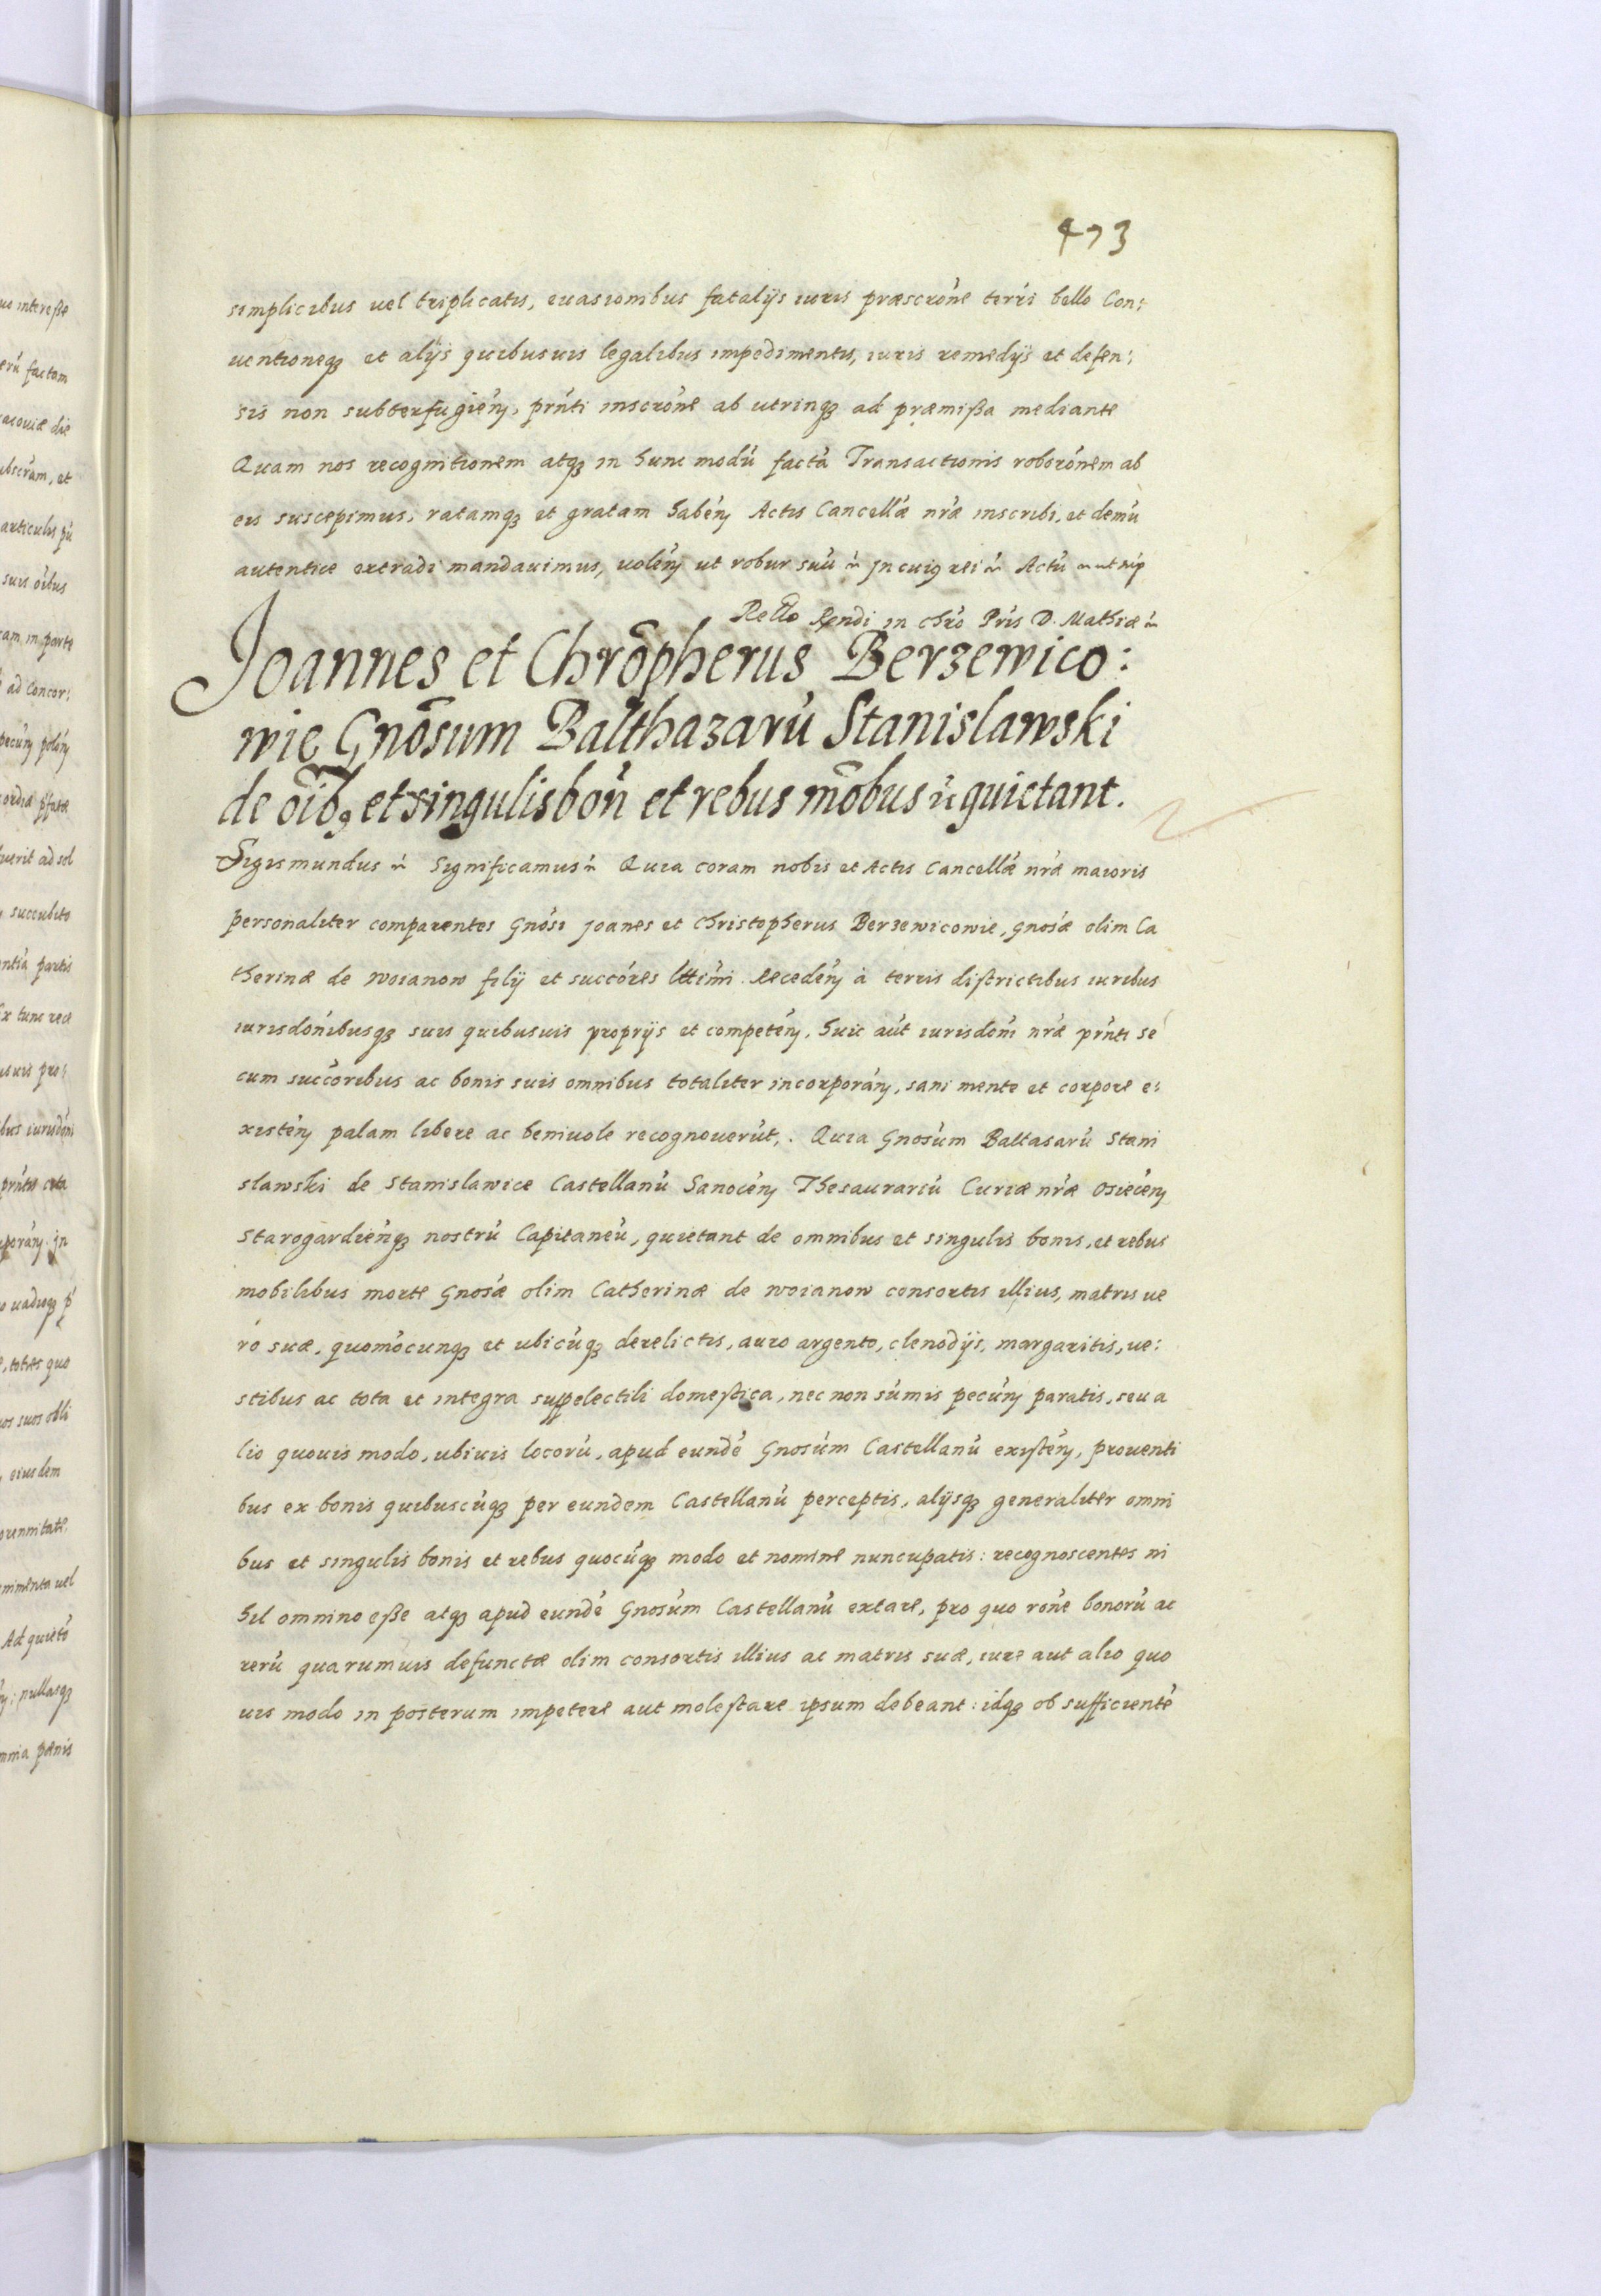 473
simplicibus vel triplicatis, euasionibus fatalijs iuris præscrōne terrī bello Con:
uentioneqȝ et alijs quibusuis legalibus impedimentis, iuris remedijs et defen:
sis non subterfugień, prńti inscrōne ab utrinqȝ ad præmißa mediante
Quam nos recognitionem atqȝ in hunc modū factā Transactionis roborōnem ab
eis suscepimus, ratamqȝ et gratam habeń Actis Cancellæ nræ inscribi, et demū
autentice extradi mandauimus, uoleń ut robur suū ń Jn cuius rei ń Actū ń ut sup
Rello Rendi in chro Pris D. Mathiæ ń
Joannes et Chrōpherus Berzewico:
wie Gnōsum Balthazarū Stanislawski
de oībȝ et singulis boń et rebus mōbus ń quietant.
Sigismundus ń Significamus ń Quia coram nobis et Actis Cancellæ nræ maioris
personaliter comparentes Gnōsi Joanes et Christopherus Berzewicowie, Gnosæ olim Ca
therinæ de Woianow filij et succōres lttimi. Recedeń à terris districtibus iuribus
iurisdōnibusqȝ suis quibusuis proprijs et competeń, huic aūt iurisdōni nræ prńti se
cum succōribus ac bonis suis omnibus totaliter incorporań, sani mente et corpore e:
xisteń palam libere ac beniuole recognouerūt,. Quia Gnosum Baltasarū Stani
slawski de Stanislawice Castellanū Sanoceń Thesaurariū Curiæ nræ Osieceń
Starogardieńqȝ nostrū Capitaneū, quietant de omnibus et singulis bonis, et rebus
mobilibus morte Gnosæ olim Catherinæ de Woianow consortis illius, matris ue
ro suæ, quomōcunqȝ et ubicūqȝ derelictis, auro argento, clenodijs, margaritis, ue:
stibus ac tota et integra suppelectili domestica, nec non sūmis pecuń paratis, seu a
lio quouis modo, ubiuis locorū, apud eundē Gnosūm Castellanū existeń, prouenti
bus ex bonis quibuscūqȝ per eundem Castellanū perceptis, alijsqȝ generaliter omni
bus et singulis bonis et rebus quocūqȝ modo et nomine nuncupatis: recognoscentes ni
hil omnino eße atqȝ apud eundē Gnosūm Castellanū extare, pro quo rōne bonorū ac
rerū quarumuis defunctæ olim consortis illius ac matris suæ, iure aut alio quo
uis modo in posterum impetere aut molestare ipsum debeant: idqȝ ob sufficientē